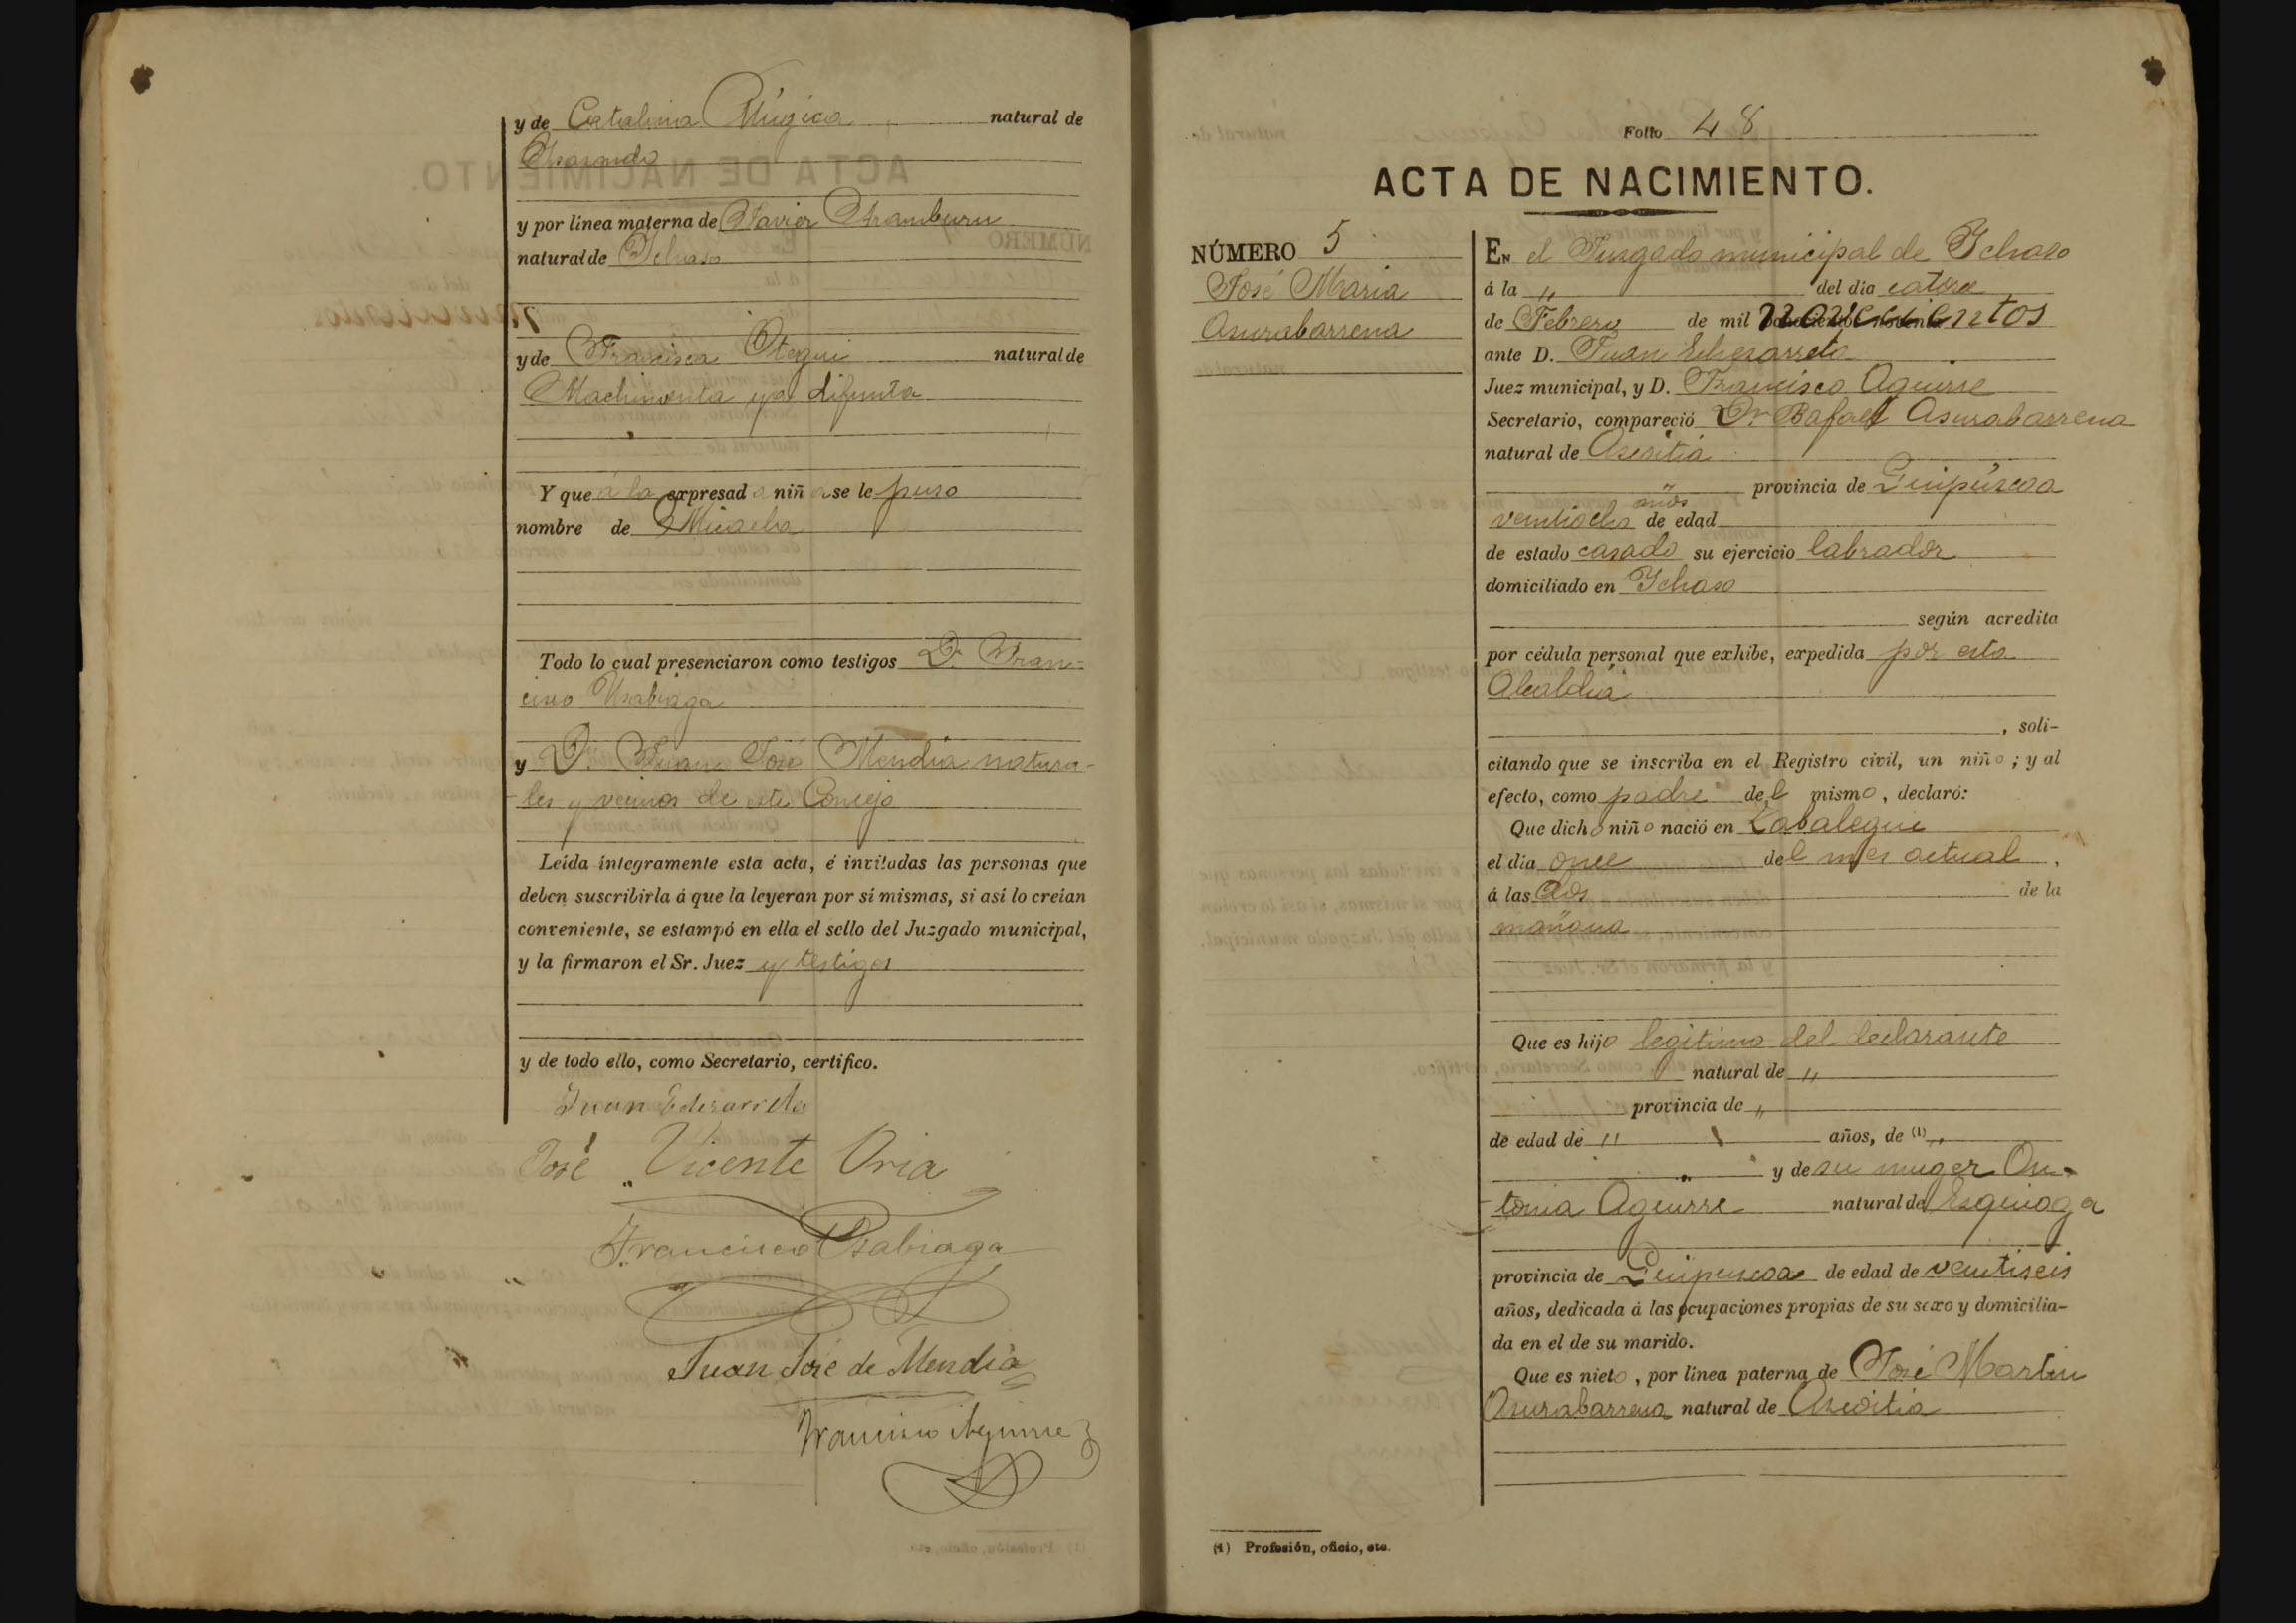 y de Catalina Múgica natural de
y por linea materna de Javier Aramburu
natural de Ichaso
y de Francisca Otegui natural de
Machinventa ya difunta
Y que á la expresada niña se le puso
nombre de Micaela
Todo lo cual presenciaron como testigos D. Fran-
cisco Usabiaga
y D. Juan José Mendia natura-
les y vecinos de este Concejo
Leida íntegramente esta acta, é invitadas las personas que
deben suscribirla á que la leyeran por sí mismas, si así lo creían
conveniente, se estampó en ella el sello del Juzgado municipal,
y la firmaron el Sr. Juez y testigos
y de todo ello, como Secretario, certifico.
Juan Echezarreta
José Vicente Oria
Francisco Usabiaga
Juan José de Mendia
Francisco Aguirre
Folio 48
ACTA DE NACIMIENTO.
NÚMERO 5
José Maria
Asurabarrena
EN el Jusgado municipal de Ichaso
á la " del día catorce
de Febrero de mil novecientos
ante D. Juan Echezarreta
Juez municipal, y D. Francisco Aguirre
Secretario, compareció Dn Rafael Asurabarrena
natural de Ascoitia
" provincia de Guipúscoa
ventiocho años de edad
de estado casado su ejercicio labrador
domiciliado en Ichaso
según acredita
por cédula personal que exhibe, expedida por esta
Alcaldia
, soli-
citando que se inscriba en el Registro civil, un niño; y al
efecto, como padre del mismo, declaró:
Que dicho niño nació en Zabalegui
el día once del mes actual ,
á las dos de la
mañana
Que es hijo legitimo del declarante
natural de "
provincia de "
de edad de " años, de (1) "
" y de su muger An-
tonia Aguirre natural de Esquioga
provincia de Guipuscoa de edad de ventiseis
años, dedicada á las ocupaciones propias de su sexo y domicilia-
da en el de su marido.
Que es nieto, por linea paterna de José Martin
Asurabarrena natural de Ascoitia
(1) Profesión, oficio, etc.